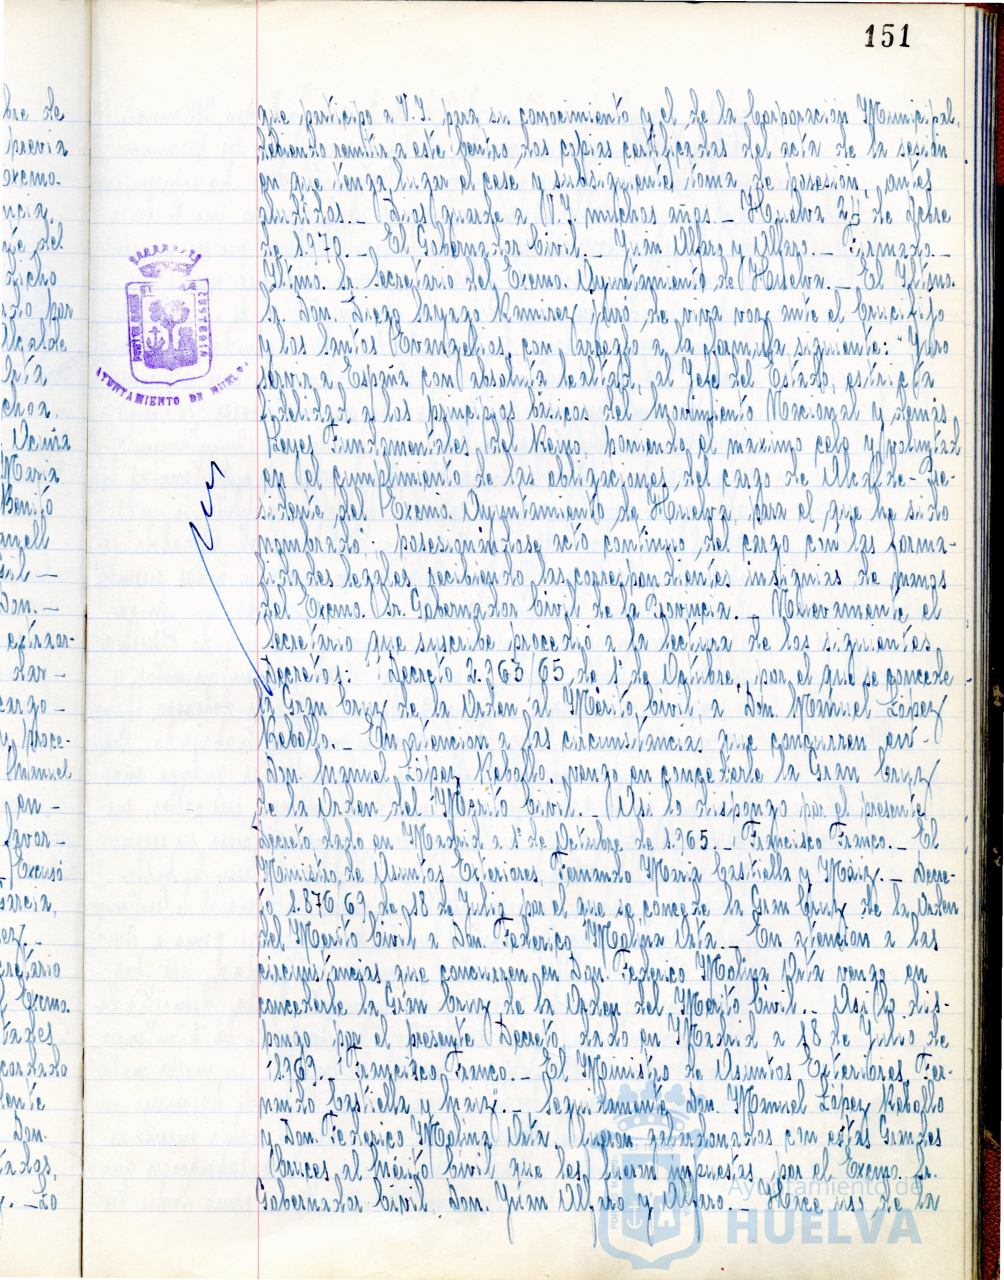 151
que participo a V.I. para su conocimiento y el de la Corporación Municipal,
debiendo remitir a este Centro dos copias certificadas del acta de la sesión
en que tenga lugar el cese y subsiguiente toma de posesión, antes
aludidos.- Dios guarde a V.I. muchos años.- Huelva 24 de Octbre
de 1.970.- El Gobernador Civil.- Juan Alfaro y Alfaro.- Firmado.-
Iltmo. Sr. Secretario del Excmo. Ayuntamiento de Huelva.- El Iltmo.
Sr. Don. Diego Sayago Ramirez juró, de viva voz ante el Crucifijo
y los Santos Evangelios, con arreglo a la formula siguiente: "Juro
servir a España con absoluta lealtad, al Jefe del Estado, estricta
fidelidad a los principios básicos del Movimiento Nacional y demás
Leyes Fundamentales del Reino, poniendo el máximo celo y voluntad
en el cumplimiento de las obligaciones del cargo de Alcalde-Pre-
sidente del Excmo Ayuntamiento de Huelva, para el que he sido
nombrado", posesionándose acto continuo del cargo con las forma-
lidades legales, recibiendo las correspondientes insignias de manos
del Excmo. Sr. Gobernador Civil de la Provincia. Nuevamente el
Secretario que suscribe procedió a la lectura de los siguientes
Decretos: "Decreto 2.363/65, de 1º de Octubre, por el que se concede
la Gran Cruz de la Orden al Mérito Civil a Don Manuel López
Rebollo.- En atención a las circunstancias que concurren en
Don Manuel López Rebollo, vengo en concederle la Gran Cruz
de la Orden del Mérito Civil.- Así lo dispongo por el presente
Decreto dado en Madrid a 1º de Octubre de 1.965.- Francisco Franco.- El
Ministro de Asuntos Exteriores, Fernando Maria Castiella y Máiz.- Decre-
to 1.876/69 de 18 de Julio por el que se concede la Gran Cruz de la Orden
del Mérito Civil a Don. Federico Molina Orta.- En atención a las
circunstancias que concurren en Don. Federico Molina Orta vengo en
concederle la Gran Cruz de la Orden del Mérito Civil.- Así lo dis-
pongo por el presente Decreto dado en Madrid a 18 de Julio de
1.969. Francisco Franco.- El Ministro de Asuntos Exteriores Fer-
nando Castiella y Maiz.-, Seguidamente Don. Manuel López Rebollo
y Don. Federico Molina Orta fueron galardonados con estas Grandes
Cruces al Mérito Civil que les fueron impuestas por el Excmo. Sr.
Gobernador Civil Don. Juan Alfaro y Alfaro.- Hace uso de la
AYUNTAMIENTO DE HUELVA
bre de
previa
excmo.
dicho
por
Alcalde
Orta
Acuña
Maria
Benito
Don.-
extraor-
cargo
Proce-
Manuel
en
Garcia,
Excmo.
Don.
Ayuntamiento de
HUELVA